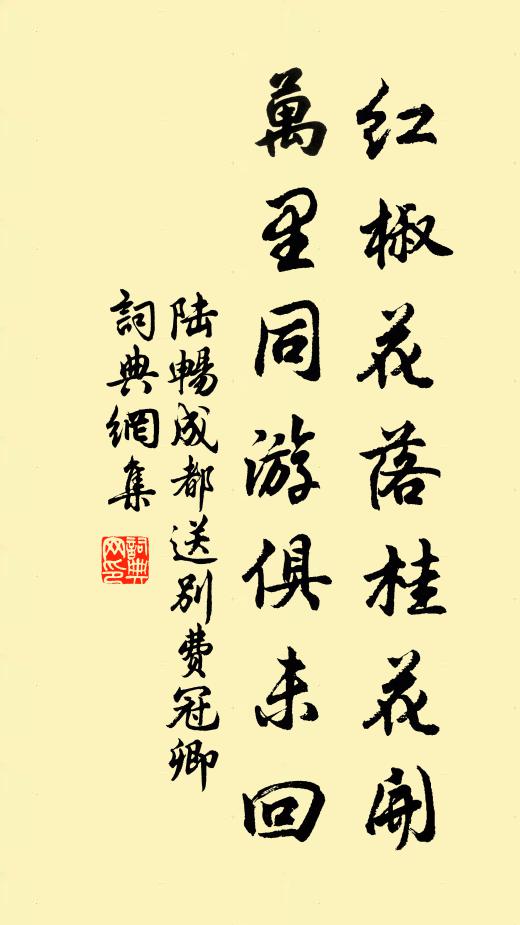 红椒花落桂花开
萬里同游俱未回
陆暢成都送别費冠卿
詞典網集
詞典網印